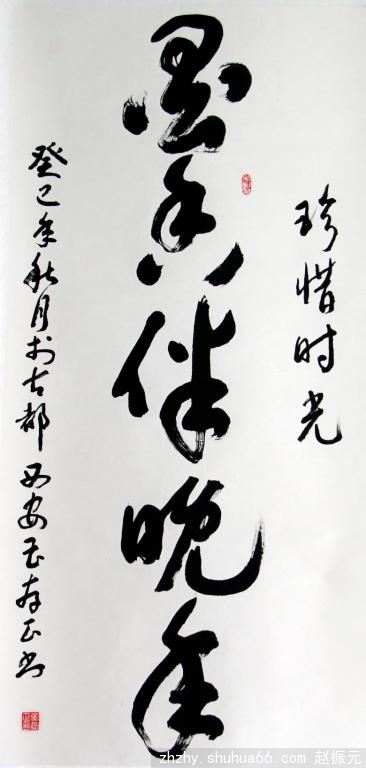 珍惜时光
墨香伴晚年
癸巳年秋月于古都西安
书
zhzhy.shuhua66.com 赵振元